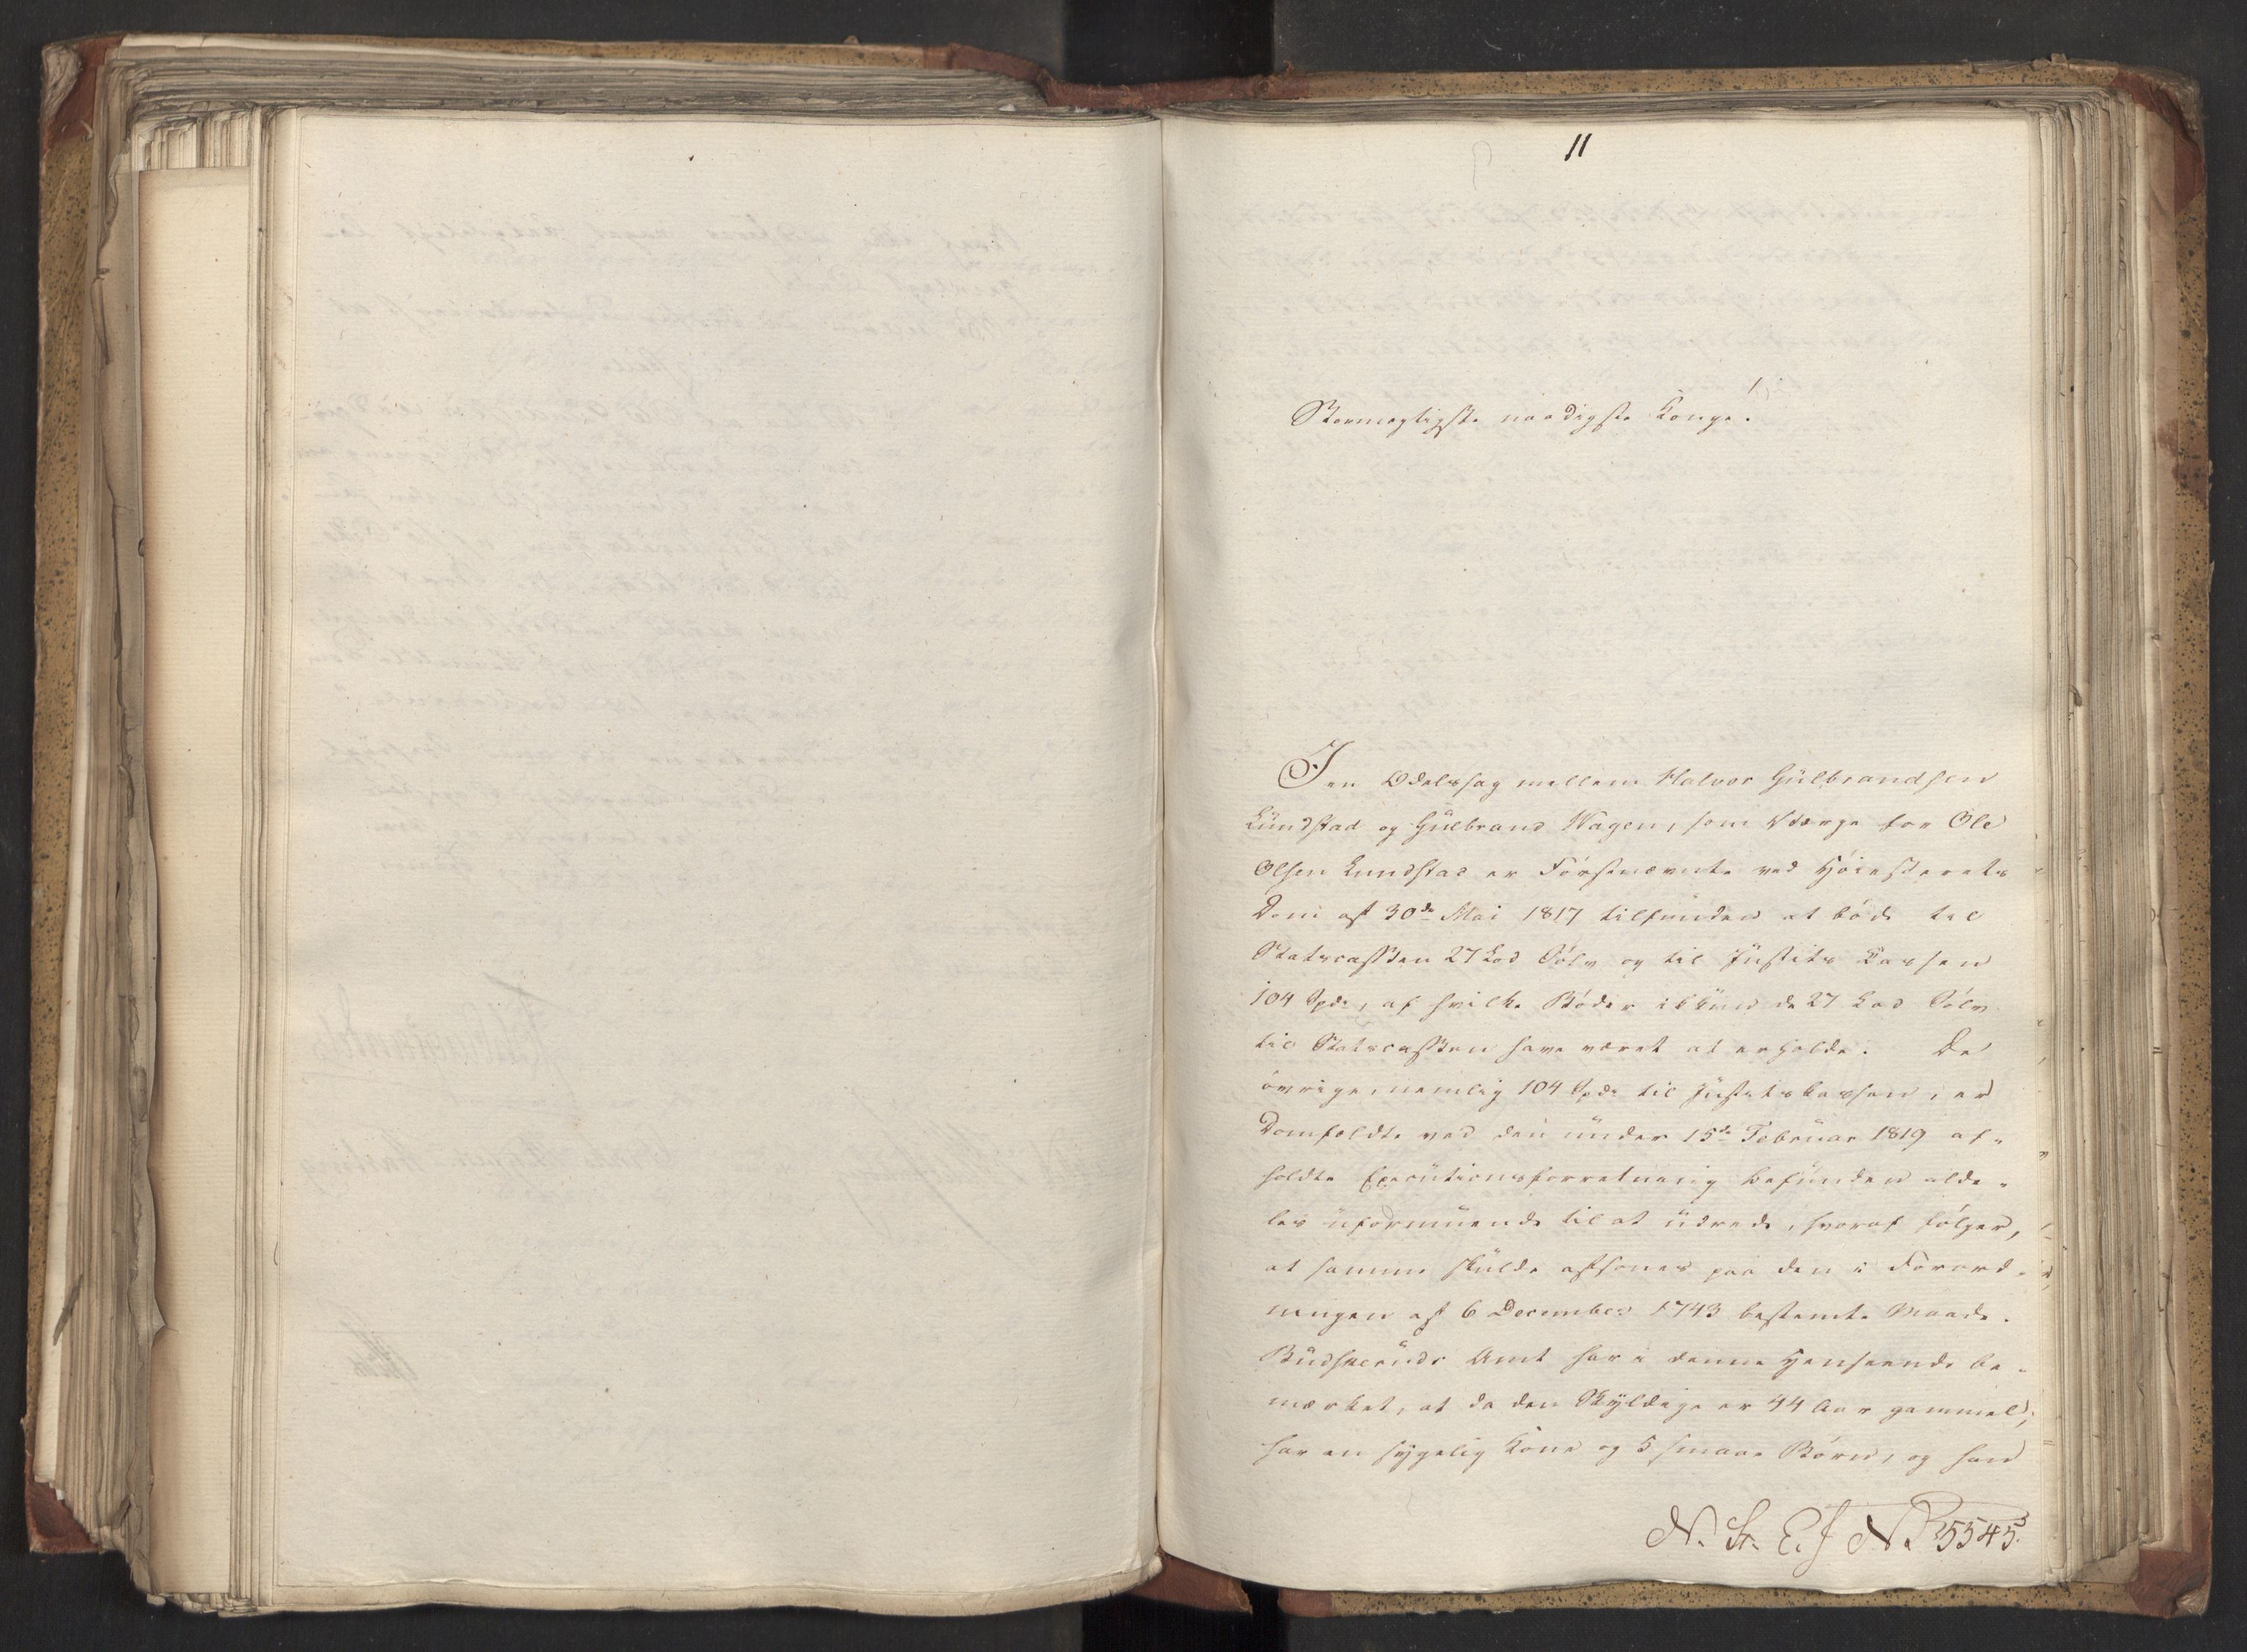 11
Stormægtigste naadigste Konge!
I en Odelssag mellem Halvor Gülbrandsen
Lundstad og Gülbrand Wagen, som Værge for Ole
Olsen Lundstad er Förstnævnte ved Höiesterets
Dom af 30de Mai 1817 tilfunden at böde til
Statscassen 27 Lod Sölv og til Justits Cassen
104 Spd, af hvilke Böder ikkun de 27 Lod Sölv
til Statscassen have været at erholde. De
övrige, nemlig 104 Spd til Justitskassen, er
Domfældte ved den under 15de Februar 1819 af-
holdte Executionsforretning befunden alde-
les uformuende til at udrede, hvoraf fölger,
at samme skulde afsones paa den i Forord-
ningen af 6 December 1743 bestemte Maade.
Budskeruds Amt har i denne Henseende be-
mærket, at da den Skyldige er 44 Aar gammel,
har en sygelig Kone og 5 smaae Börn, og han
N. St. E. J No 5545